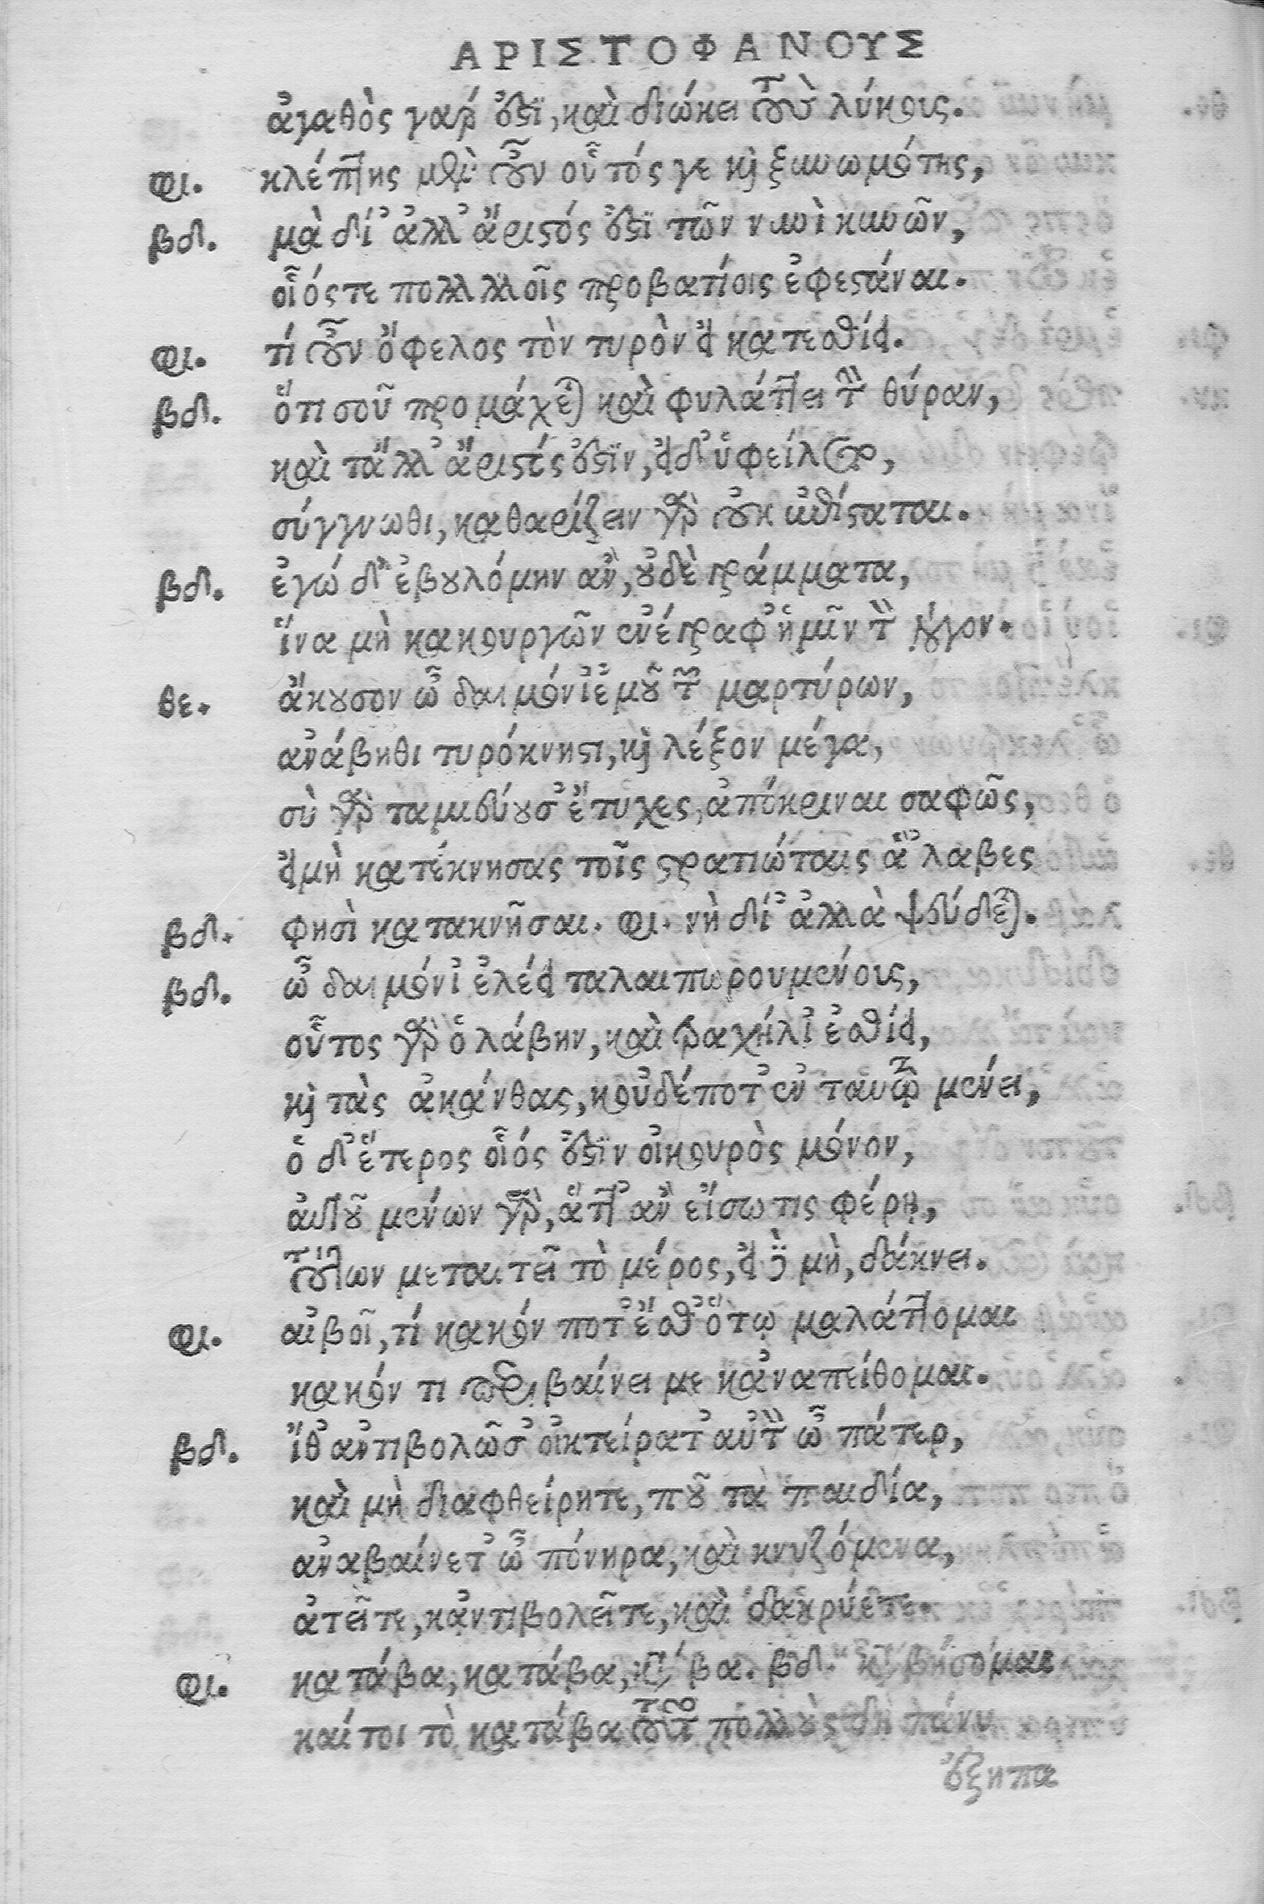 ΑΡΙΣΤΟΦΑΝΟΥΣ
ἀγαθὸς γαρ ἐστὶ, καὶ διώκει τοὺς λύκοις.
φι. κλέπτης μὲν οὖν οὗτός γε καὶ ξυνωμότης,
βδ. μὰ δί' ἀλλ' ἄριστός ἐστὶ τῶν νυνὶ κυνῶν,
οἷός τε πολλλλοῖς προβατίοις ἐφεστάναι.
φι. τί οὖν ὄφελος τὸν τυρὸν εἰ κατεσθίει.
βδ. ὅτι σοῦ προμάχεται καὶ φυλάττει τὴν θύραν,
καὶ τἄλλ' ἄριστός ἐστὶν, εἰ δ' ὑφείλετο,
σύγγνωθι, καθαρίζειν γὰρ οὐκ ἐπίσταται.
βδ. ἐγώ δ' ἐβουλόμην ἂν, οὐδὲ γράμματα,
ἵνα μὴ κακουργῶν ἐνέγραφ' ἡμῖν τὸν λόγον.
θε. ἄκουσον ὦ δαιμόνἰ ἐμοῦ τῶν μαρτύρων,
ἀνάβηθι τυρόκνηστι, καὶ λέξον μέγα,
σὺ γὰρ ταμιεύουσ' ἔτυχες, ἀπόκριναι σαφῶς,
εἰ μὴ κατέκνησας τοῖς στρατιώταις ἃ 'λαβες
βδ. φησὶ κατακνῆσαι. φι. νὴ δί' ἀλλὰ ψεύδεται.
βδ. ὦ δαιμόνἰ ἐλέει ταλαιπωρουμένοις,
οὗτος γὰρ ὁ λάβην, καὶ τραχήλἰ ἐσθίει,
καὶ τὰς ἀκάνθας, κοὐδέποτ' ἐν ταυτῷ μένει,
ὁ δ' ἕτερος οἷός ἐστὶν οἰκουρὸς μόνον,
αὐτοῦ μένων γὰρ, ἅττ' ἂν εἴσω τις φέρῃ,
τούτων μεταιτεῖ τὸ μέρος, εἰ δὲ μὴ, δάκνει.
φι. αἰβοῖ, τί κακόν ποτ' ἔσθ' ὅτῳ μαλάττομαι
κακόν τι περιβαίνει με κἀναπείθομαι.
βδ. ἴθ' ἀντιβολῶ σ' οἰκτείρατ' αὐτὸν ὦ πάτερ,
καὶ μὴ διαφθείρητε, ποῦ τὰ παιδία,
ἀναβαίνετ' ὦ πόνηρα, καὶ κνυζόμενα,
ἀτεῖτε, κἀντιβολεῖτε, καὶ δακρύετε.
φι. κατάβα, κατάβα, κατάβα. βδ. καταβήσομαι
καίτοι τὸ κατάβα τοῦτο πολλοὺς δὴ πάνυ
ἐξηπα